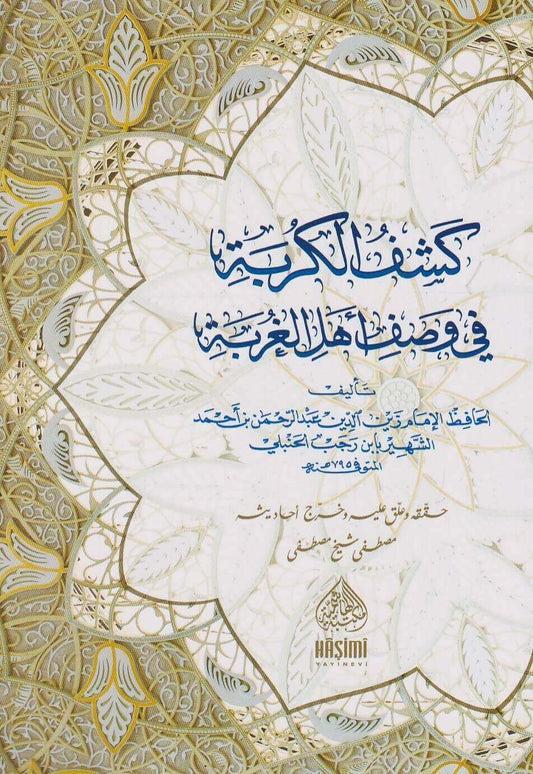 كَشْفُ الْكُرْبَةِ
فِي وَصْفِ أَهْلِ الْغُرْبَةِ
تأليف
الحافظ الإمام زين الدين عبد الرحمن بن أحمد
الشهير بابن رجب الحنبلي
المتوفى ٧٩٥ هـ
حققه وعلق عليه وخرج أحاديثه
مصطفى شيخ مصطفى
HÂŞİMÎ
YAYINEVİ